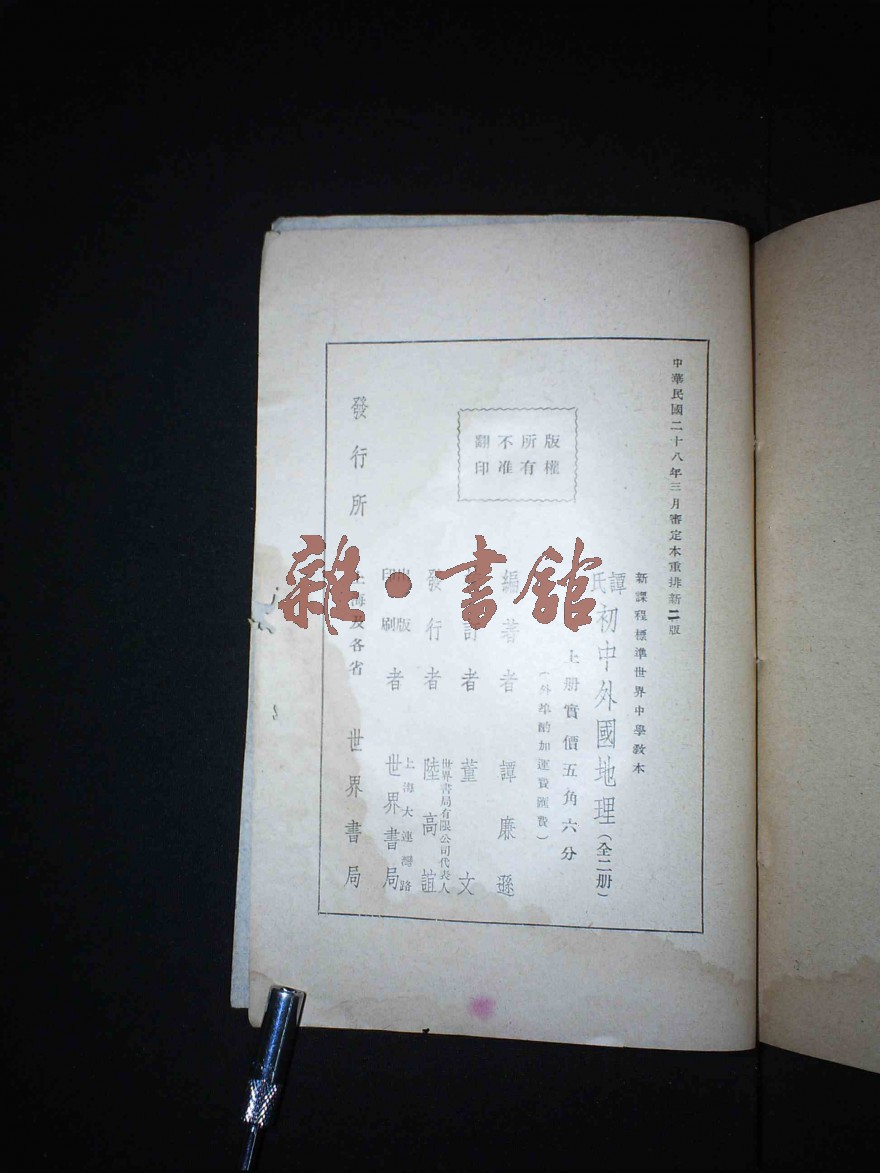 中華民國二十八年三月審定本重排新二版
新課程標準世界中學教本
譚氏初中外國地理(全二册)
上册實價五角六分
(外埠酌加運費匯費)
版權所有
不准翻印
編著者 譚廉遜
訂者 董文
發行者 陸高誼
世界書局有限公司代表人
出版印刷者 世界書局
上海大連灣路
發行所 上海及各省 世界書局
雜·書館